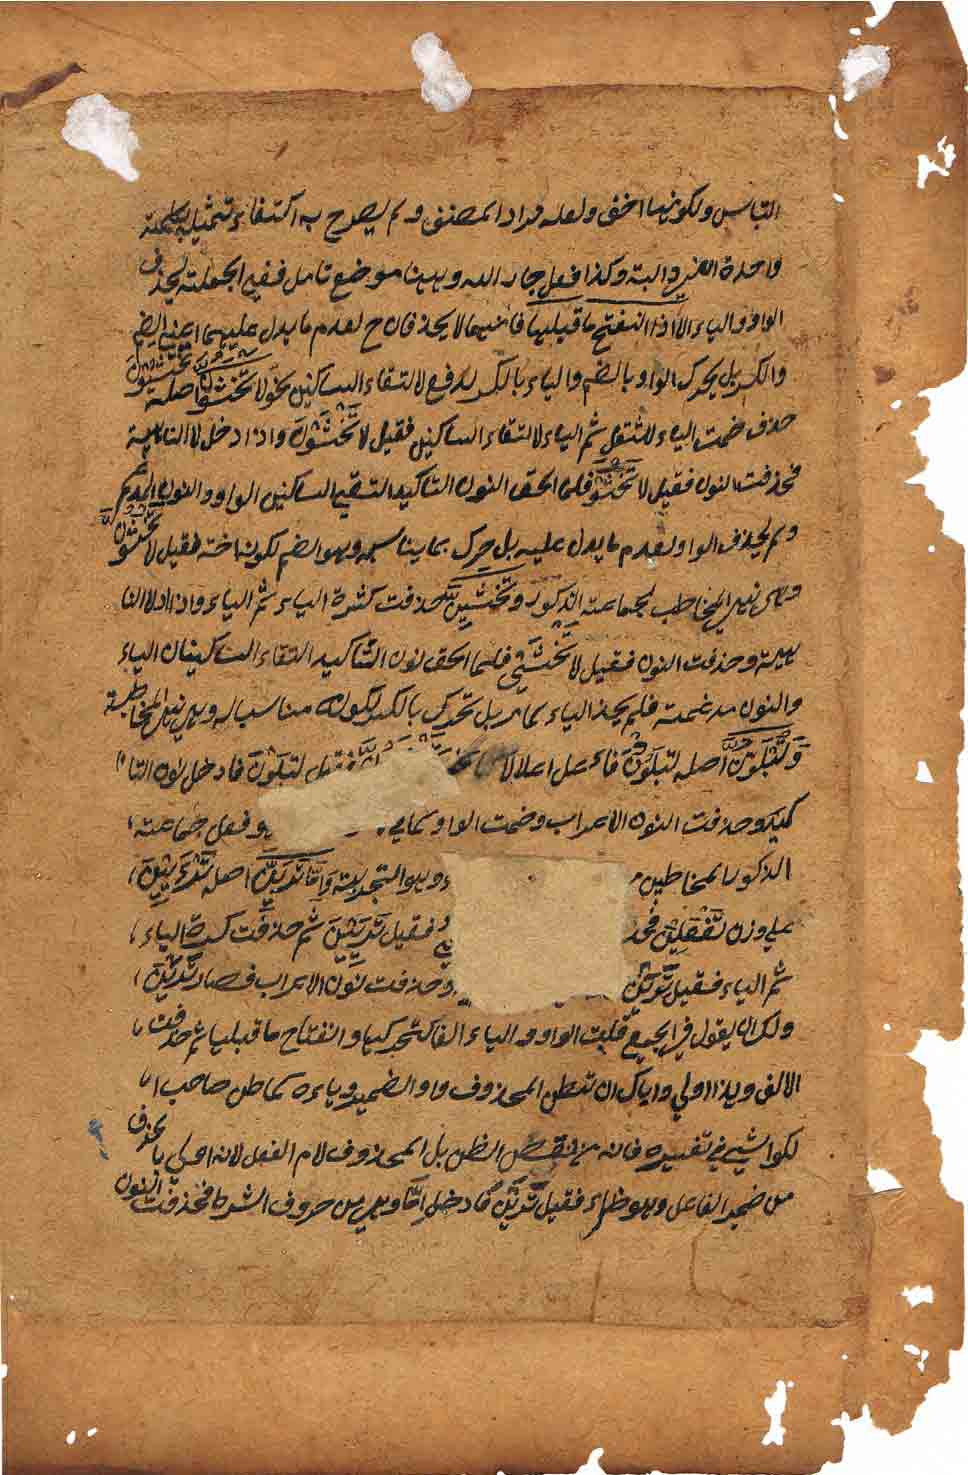 التباس ولكونهما اخف ولعله مراد المصنف ولم يصرح به اكتفاء بتمثيله بكلمة
واحدة البتة وكذا فعل جار الله وههنا موضع تامل ففي الجملة يحذف
الواو والياء الا اذا انفتح ما قبلهما فانهما لا يحذفان ح لعدم ما يدل عليهما اعني الضم
والكسر بل يحرك الواو بالضم والياء بالكسر لدفع لالتقاء الساكنين نحو لا تخشون اصله تخشيون
حذف ضمت الياء للثقل ثم الياء لالتقاء الساكنين فقيل لا تخشون واذا دخل لا الناهية
فحذفت النون فقيل لا تخشو فلما الحق النون التاكيد التقي الساكنين الواو والنون المدغم
ولم يحذف الواو لعدم ما يدل عليه بل حرك بما يناسبه وهو الضم لكونه اخته فقيل لا تخشون
وهي نهي المخاطب لجماعة الذكور وتخشين حذفت كسرة الياء ثم الياء واذا ادخل لا النا
هية وحذفت النون فقيل لا تخشي فلما الحق نون التاكيد التقاء الساكنان الياء
والنون مدغمة فلم يحذ الياء لما مر بل تحرك بالكسر لكونه مناسبا له وهي نهي المخاطبة
ولتبلون اصله لتبلوون فاعل اعلال فقيل لتبلون فادخل نون التا
كيد وحذفت النون الاعراب وضمت الواو كما في وفعل جماعة
الذكور المخاطبين وهو التجربة واما ترين اصله ترءيين
علي وزن تفعلين فحذ فقيل تريين ثم حذفت كسرة الياء
ثم الياء فقيل ترين وحذفت نون الاعراب فصار ترين
ولك ان يقول في الجميع قلبت الواو والياء الفا لتحركها وانفتاح ما قبلها ثم حذفت
الالف وهذا اولي واياك ان تظن المحذوف واو الضمير وياءه كما ظن صاحب ا
لكواشي في تفسيره فانه من بعض الظن بل المحذوف لام الفعل لانه اولي بالحذف
من ضمير الفاعل وهو ظاهر فقيل ترين فادخل اما وهي من حروف الشرط فحذفت النون